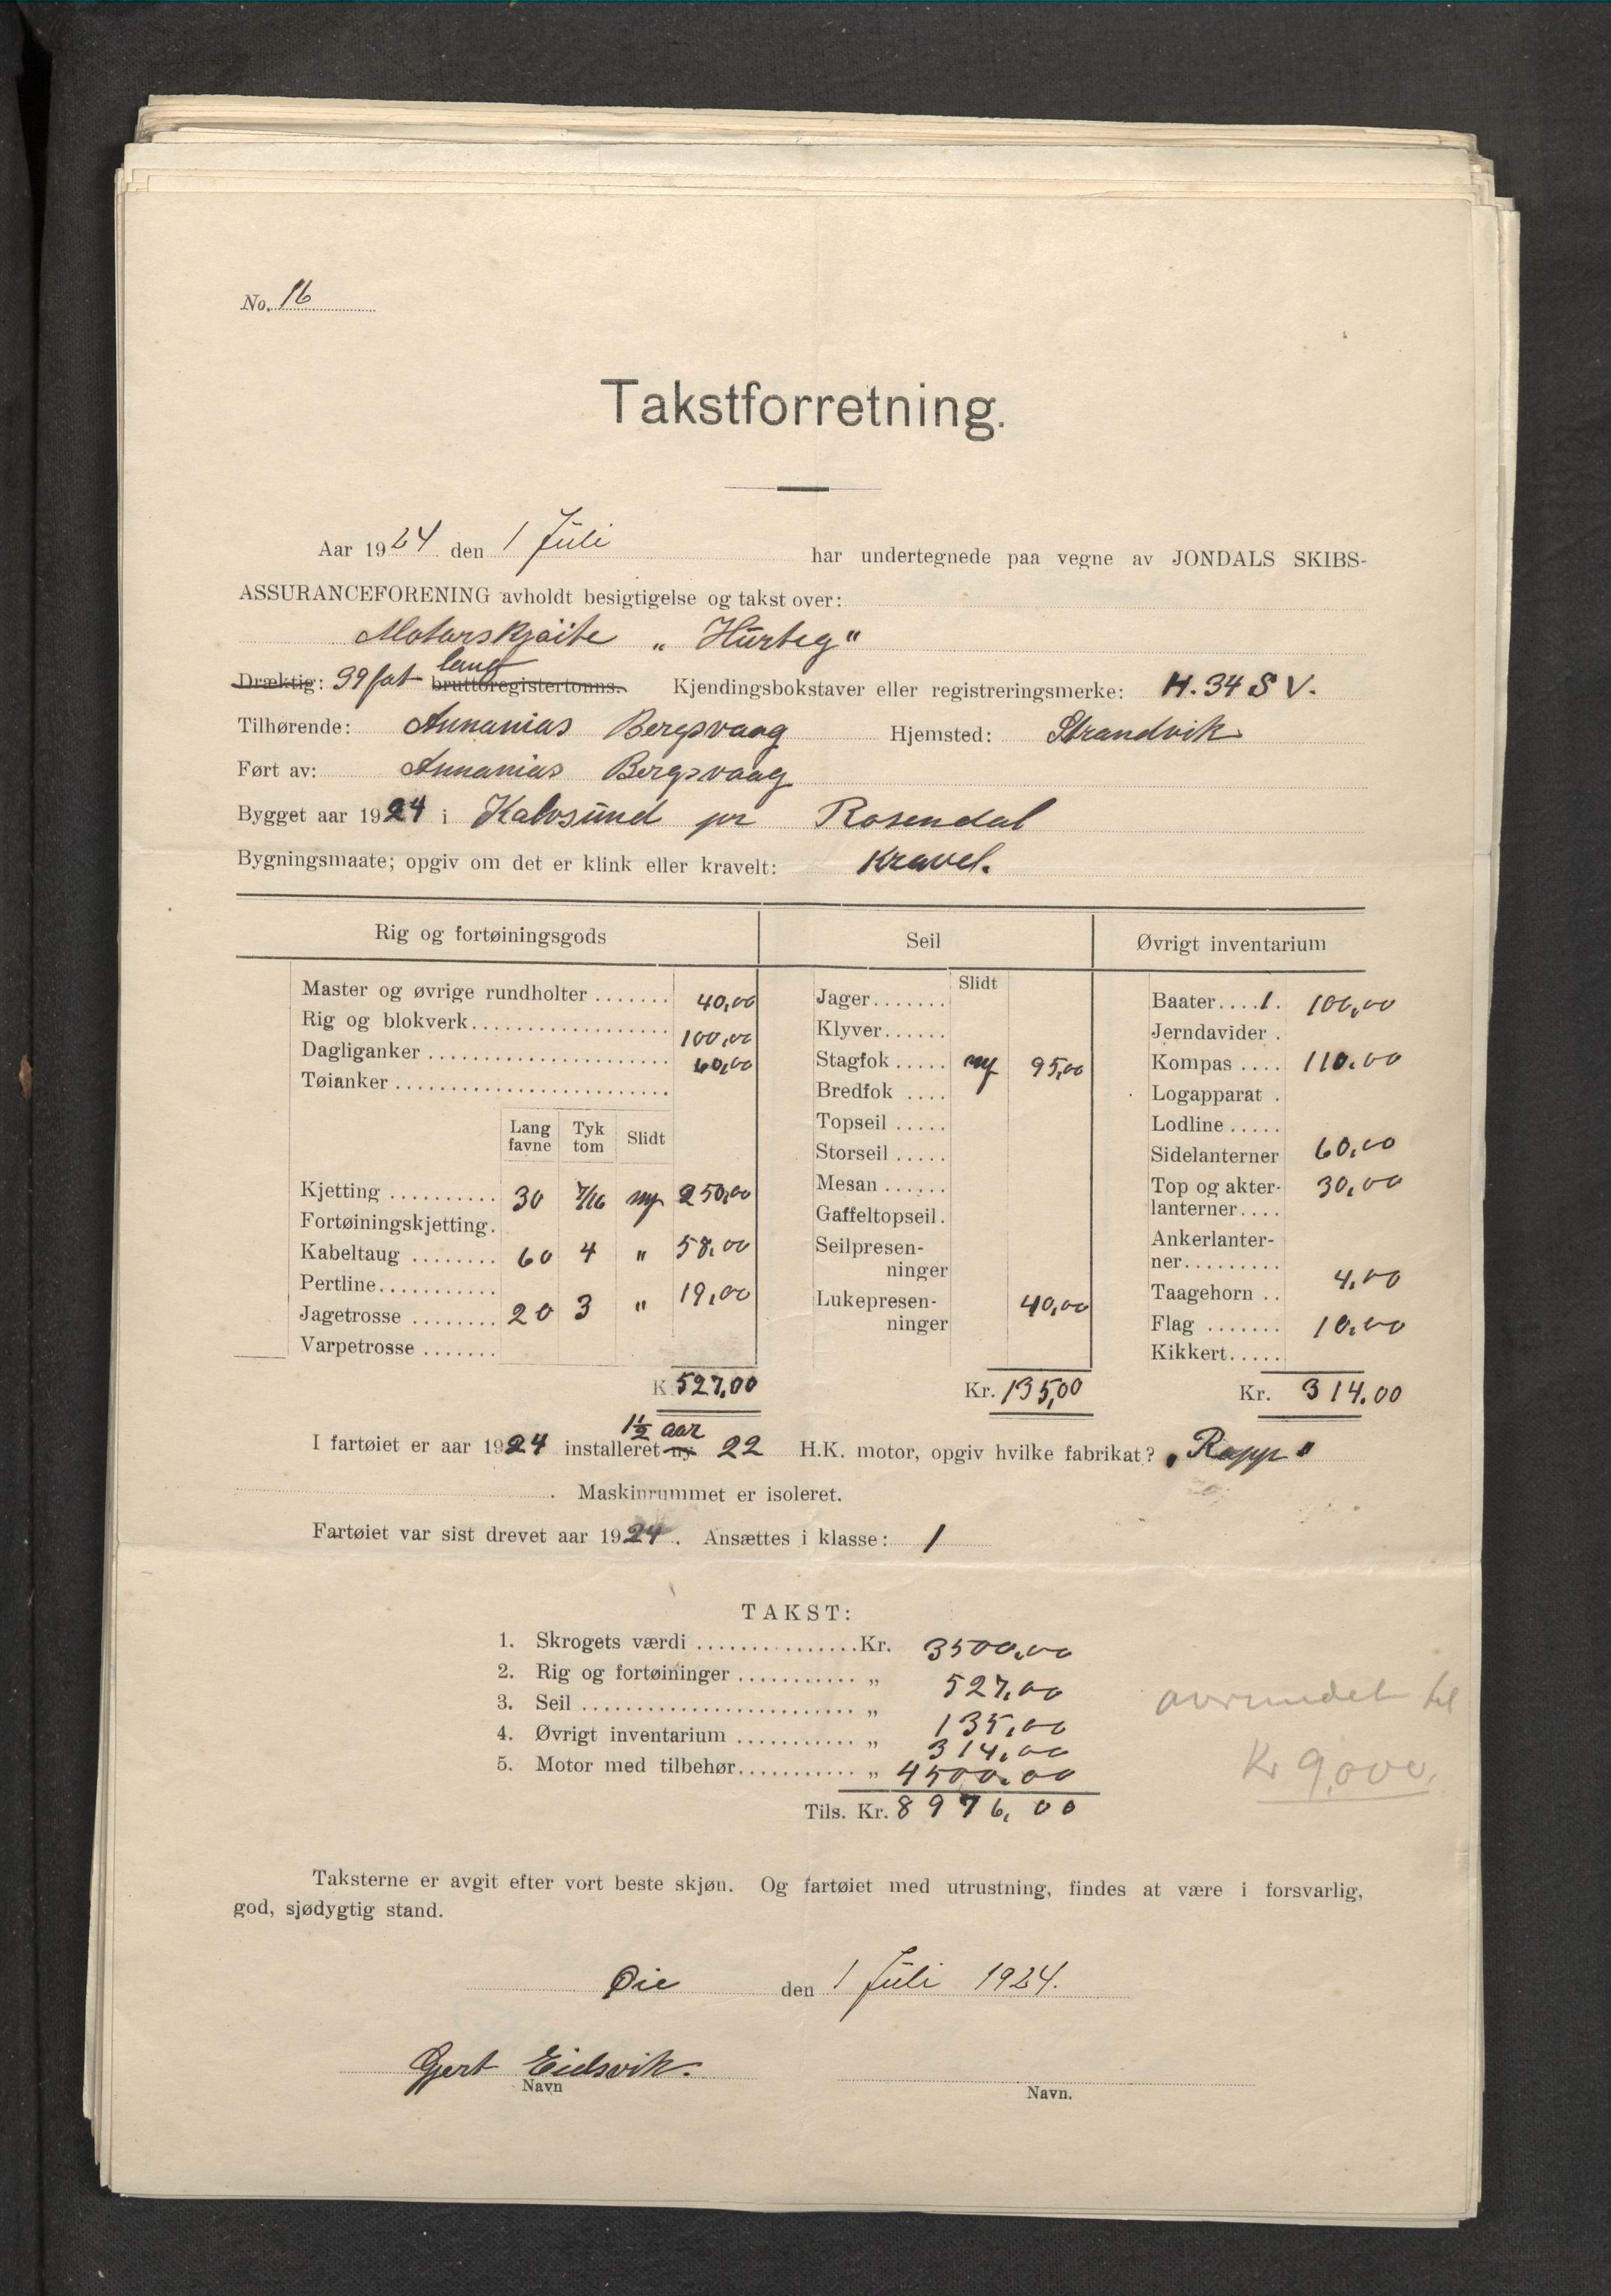 No. 16
Takstforretning.
Aar 1924 den 1 Juli har undertegnede paa vegne av JONDALS SKIBS-
ASSURANCEFORENING avholdt besigtigelse og takst over:
Motorskjøite „ Hurteg"
lang
Dræktig: 39 fot bruttoregistertonns. Kjendingsbokstaver eller registreringsmerke: H. 34 S V.
Tilhørende: Annanias Bergsvaag Hjemsted: Strandvik
Ført av: Annanias Bergsvaag
Bygget aar 1924 i Kalvsund pr Rosendal
Bygningsmaate; opgiv om det er klink eller kravelt: Kravel.
Rig og fortøiningsgods
Master og øvrige rundholter ....... 40,00
Rig og blokverk................... 100,00
Dagliganker ....................... 60,00
Tøianker ..........................
Lang favne Tyk tom Slidt
Kjetting .......... 30 7/16 ny 250,00
Fortøiningskjetting.
Kabeltaug ........ 60 4 " 58,00
Pertline...........
Jagetrosse ........ 20 3 " 19,00
Varpetrosse .......
K 527,00
Seil
Slidt
Jager.......
Klyver......
Stagfok ..... ny 95,00
Bredfok ....
Topseil .....
Storseil .....
Mesan ......
Gaffeltopseil.
Seilpresen-
ninger
Lukepresen-
ninger 40,00
Kr. 135,00
Øvrigt inventarium
Baater....1. 100,00
Jerndavider .
Kompas .... 110.00
Logapparat .
Lodline .....
Sidelanterner 60,00
Top og akter- 30,00
lanterner....
Ankerlanter-
ner.........
Taagehorn .. 4,00
Flag ....... 10,00
Kikkert.....
Kr. 314.00
1½ aar
I fartøiet er aar 1924 installeret ny 22 H.K. motor, opgiv hvilke fabrikat? „Rapp"
. Maskinrummet er isoleret.
Fartøiet var sist drevet aar 1924. Ansættes i klasse: 1
TAKST:
1. Skrogets værdi ...............Kr. 3500,00
2. Rig og fortøininger ........... „ 527,00
3. Seil ......................... „ 135,00
4. Øvrigt inventarium ........... „ 314,00
5. Motor med tilbehør........... „ 4500.00
Tils. Kr. 8976,00
avrundet til
Kr 9,000,
Taksterne er avgit efter vort beste skjøn. Og fartøiet med utrustning, findes at være i forsvarlig,
god, sjødygtig stand.
Øie den 1 Juli 1924.
Gjert Eidsvik.
Navn Navn.